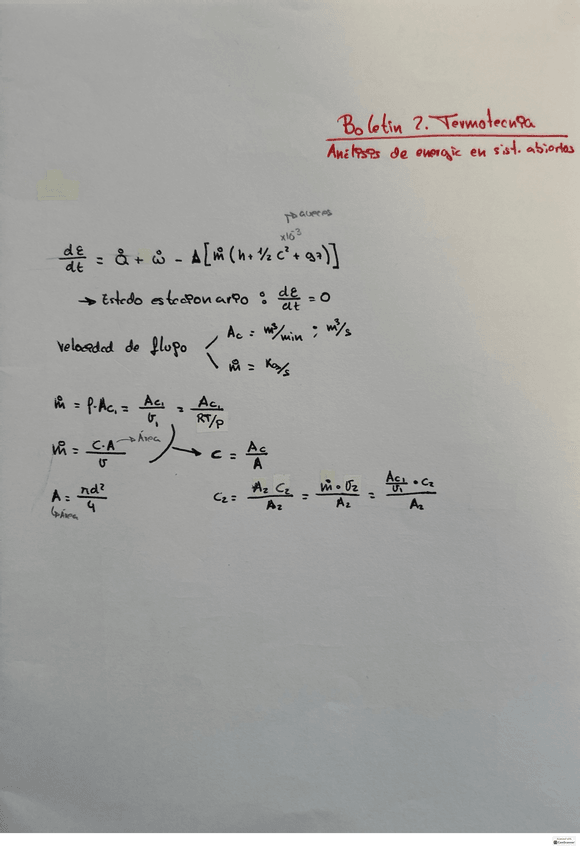 Boletin 2. Termotecnia
Análisis de energia en sist. abiertos
x10⁻³
dE/dt = Q̊ + ẘ - Δ[m̊ (h + 1/2 c² + gz)]
→ Estado estacionario : dE/dt = 0
velocidad de flujo
Ac = m³/min ; m³/s
m̊ = Kg/s
m̊ = ρ·Ac₁ = Ac₁/v₁ = Ac₁/RT/P
m̊ = C·A/v → Área
→ c = Ac/A
A = πd²/4
↳ Área
C₂ = A₂ C₂/A₂ = m̊·v₂/A₂ = Ac₁/v₁ · c₂/A₂